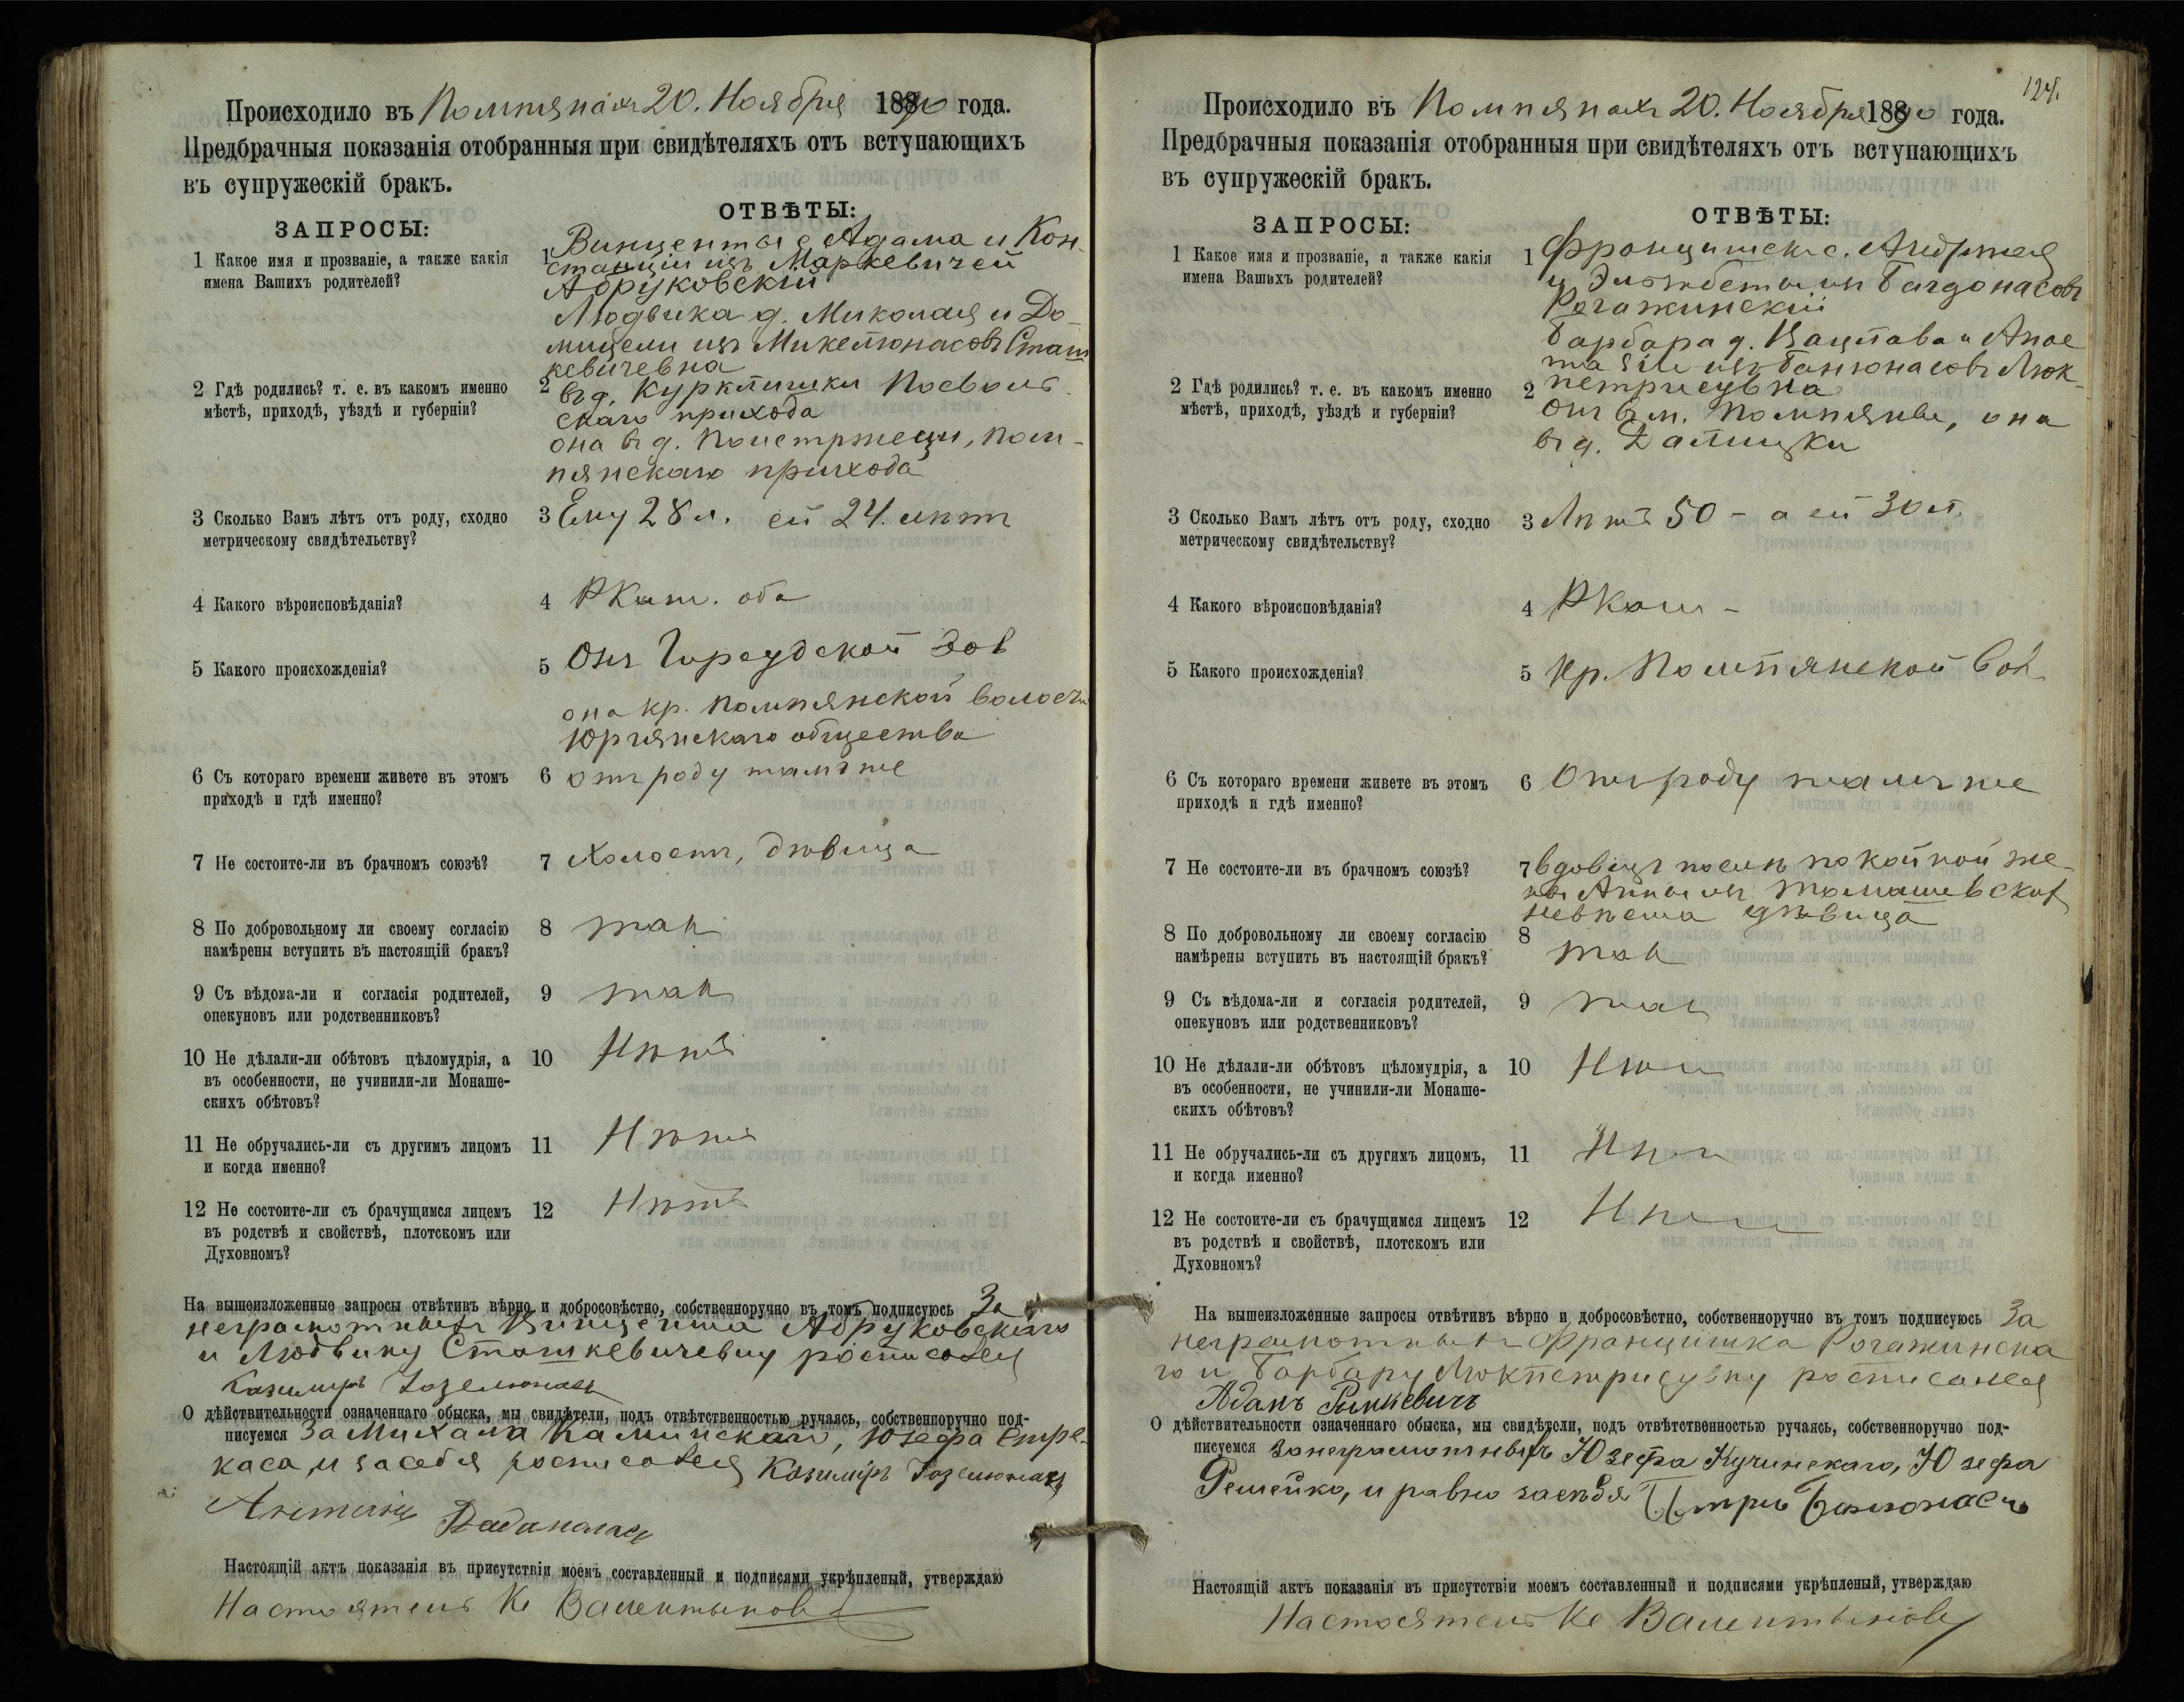 Происходило въ Помпянахъ 20. Ноября 1890 года.
Предбрачныя показанія отобранныя при свидѣтеляхъ отъ вступающихъ
въ супружескій бракъ.
ЗАПРОСЫ:
ОТВѢТЫ:
1 Какое имя и прозваніе, а также какія
имена Вашихъ родителей?
1 Винценты с. Адама и Кон-
станціи изъ Маркевичей
Абруковскій
Людвика д. Миколая и До-
мицели изъ Микелюнасовъ Сташ
кевичевна
2 Гдѣ родились? т. е. въ какомъ именно
мѣстѣ, приходѣ, уѣздѣ и губерніи?
2 въ д. Куркпишки Посволь
скаго прихода
она въ д. Поистржеци, Пом-
пянскаго прихода
3 Сколько Вамъ лѣтъ отъ роду, сходно
метрическому свидѣтельству?
3 Ему 28 л. ей 24. лѣтъ
4 Какого вѣроисповѣданія?
4 РКат. оба
5 Какого происхожденія?
5 Онъ
она кр. Помпянской волости
Юргянскаго общества
6 Съ котораго времени живете въ этомъ
приходѣ и гдѣ именно?
6 отъ роду тамъ же
7 Не состоите-ли въ брачномъ союзѣ?
7 Холостъ, дѣвица
8 По добровольному ли своему согласію
намѣрены вступить въ настоящій бракъ?
8 такъ
9 Съ вѣдома-ли и согласія родителей,
опекуновъ или родственниковъ?
9 такъ
10 Не дѣлали-ли обѣтовъ цѣломудрія, а
въ особенности, не учинили-ли Монаше-
скихъ обѣтовъ?
10 Нѣтъ
11 Не обручались-ли съ другимъ лицомъ
и когда именно?
11 Нѣтъ
12 Не состоите-ли съ брачущимся лицемъ
въ родствѣ и свойствѣ, плотскомъ или
Духовномъ?
12 Нѣтъ
На вышеизложенные запросы отвѣтивъ вѣрно и добросовѣстно, собственноручно въ томъ подписуюсь За
неграмотныхъ Винцента Абруковскаго
и Людвику Сташкевичевну росписался
Казимиръ
О дѣйствительности означеннаго обыска, мы свидѣтели, подъ отвѣтственностью ручаясь, собственноручно под-
писуемся За Михала Каминскаго, Юзефа Стре-
каса, и за себя росписался Казимиръ
Настоящій актъ показанія въ присутствіи моемъ составленный и подписями укрѣпленый, утверждаю
Настоятель Кс Валентыновъ
124.
Происходило въ Помпянахъ 20. Ноября 1890 года.
Предбрачныя показанія отобранныя при свидѣтеляхъ отъ вступающихъ
въ супружескій бракъ.
ЗАПРОСЫ:
ОТВѢТЫ:
1 Какое имя и прозваніе, а также какія
имена Вашихъ родителей?
1 Францишекъ с. Андржея
и Эльжбеты изъ Багдонасовъ
Рогажинскій
Барбара д. Вацлава и Апое
изъ Банюнасовъ Люк-
петрисувна
2 Гдѣ родились? т. е. въ какомъ именно
мѣстѣ, приходѣ, уѣздѣ и губерніи?
2 Онъ въ м. Помпяны, она
въ д.
3 Сколько Вамъ лѣтъ отъ роду, сходно
метрическому свидѣтельству?
3 Лѣтъ 50 - а ей 30 л.
4 Какого вѣроисповѣданія?
4 РКат -
5 Какого происхожденія?
5 Кр. Помпянской Вол.
6 Съ котораго времени живете въ этомъ
приходѣ и гдѣ именно?
6 Отъ роду тамъ же
7 Не состоите-ли въ брачномъ союзѣ?
7 вдовецъ послѣ покойной же-
ны Анны изъ Томашевских
невѣста дѣвица
8 По добровольному ли своему согласію
намѣрены вступить въ настоящій бракъ?
8 такъ
9 Съ вѣдома-ли и согласія родителей,
опекуновъ или родственниковъ?
9 такъ
10 Не дѣлали-ли обѣтовъ цѣломудрія, а
въ особенности, не учинили-ли Монаше-
скихъ обѣтовъ?
10 Нѣтъ
11 Не обручались-ли съ другимъ лицомъ,
и когда именно?
11 Нѣтъ
12 Не состоите-ли съ брачущимся лицемъ
въ родствѣ и свойствѣ, плотскомъ или
Духовномъ?
12 Нѣтъ
На вышеизложенные запросы отвѣтивъ вѣрно и добросовѣстно, собственноручно въ томъ подписуюсь За
неграмотныхъ Францишка Рогажинска
го и Барбару Люкпетрисувну росписался
Адамъ Ринкевичъ
О дѣйствительности означеннаго обыска, мы свидѣтели, подъ отвѣтственностью ручаясь, собственноручно под-
писуемся За неграмотныхъ Юзефа Кучинскаго, Юзефа
Ремейко, и равно за себя Петръ Банюнасъ
Настоящій актъ показанія въ присутствіи моемъ составленный и подписями укрѣпленый, утверждаю
Настоятель Кс Валентыновъ